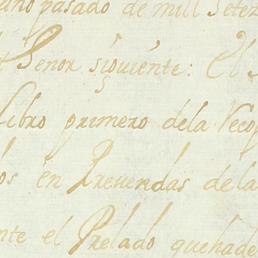 año pasado de mill Setez
Señor siguiente: El S
Libro primero dela Recop
os en Prevendas de la
nte el Prelado quehade